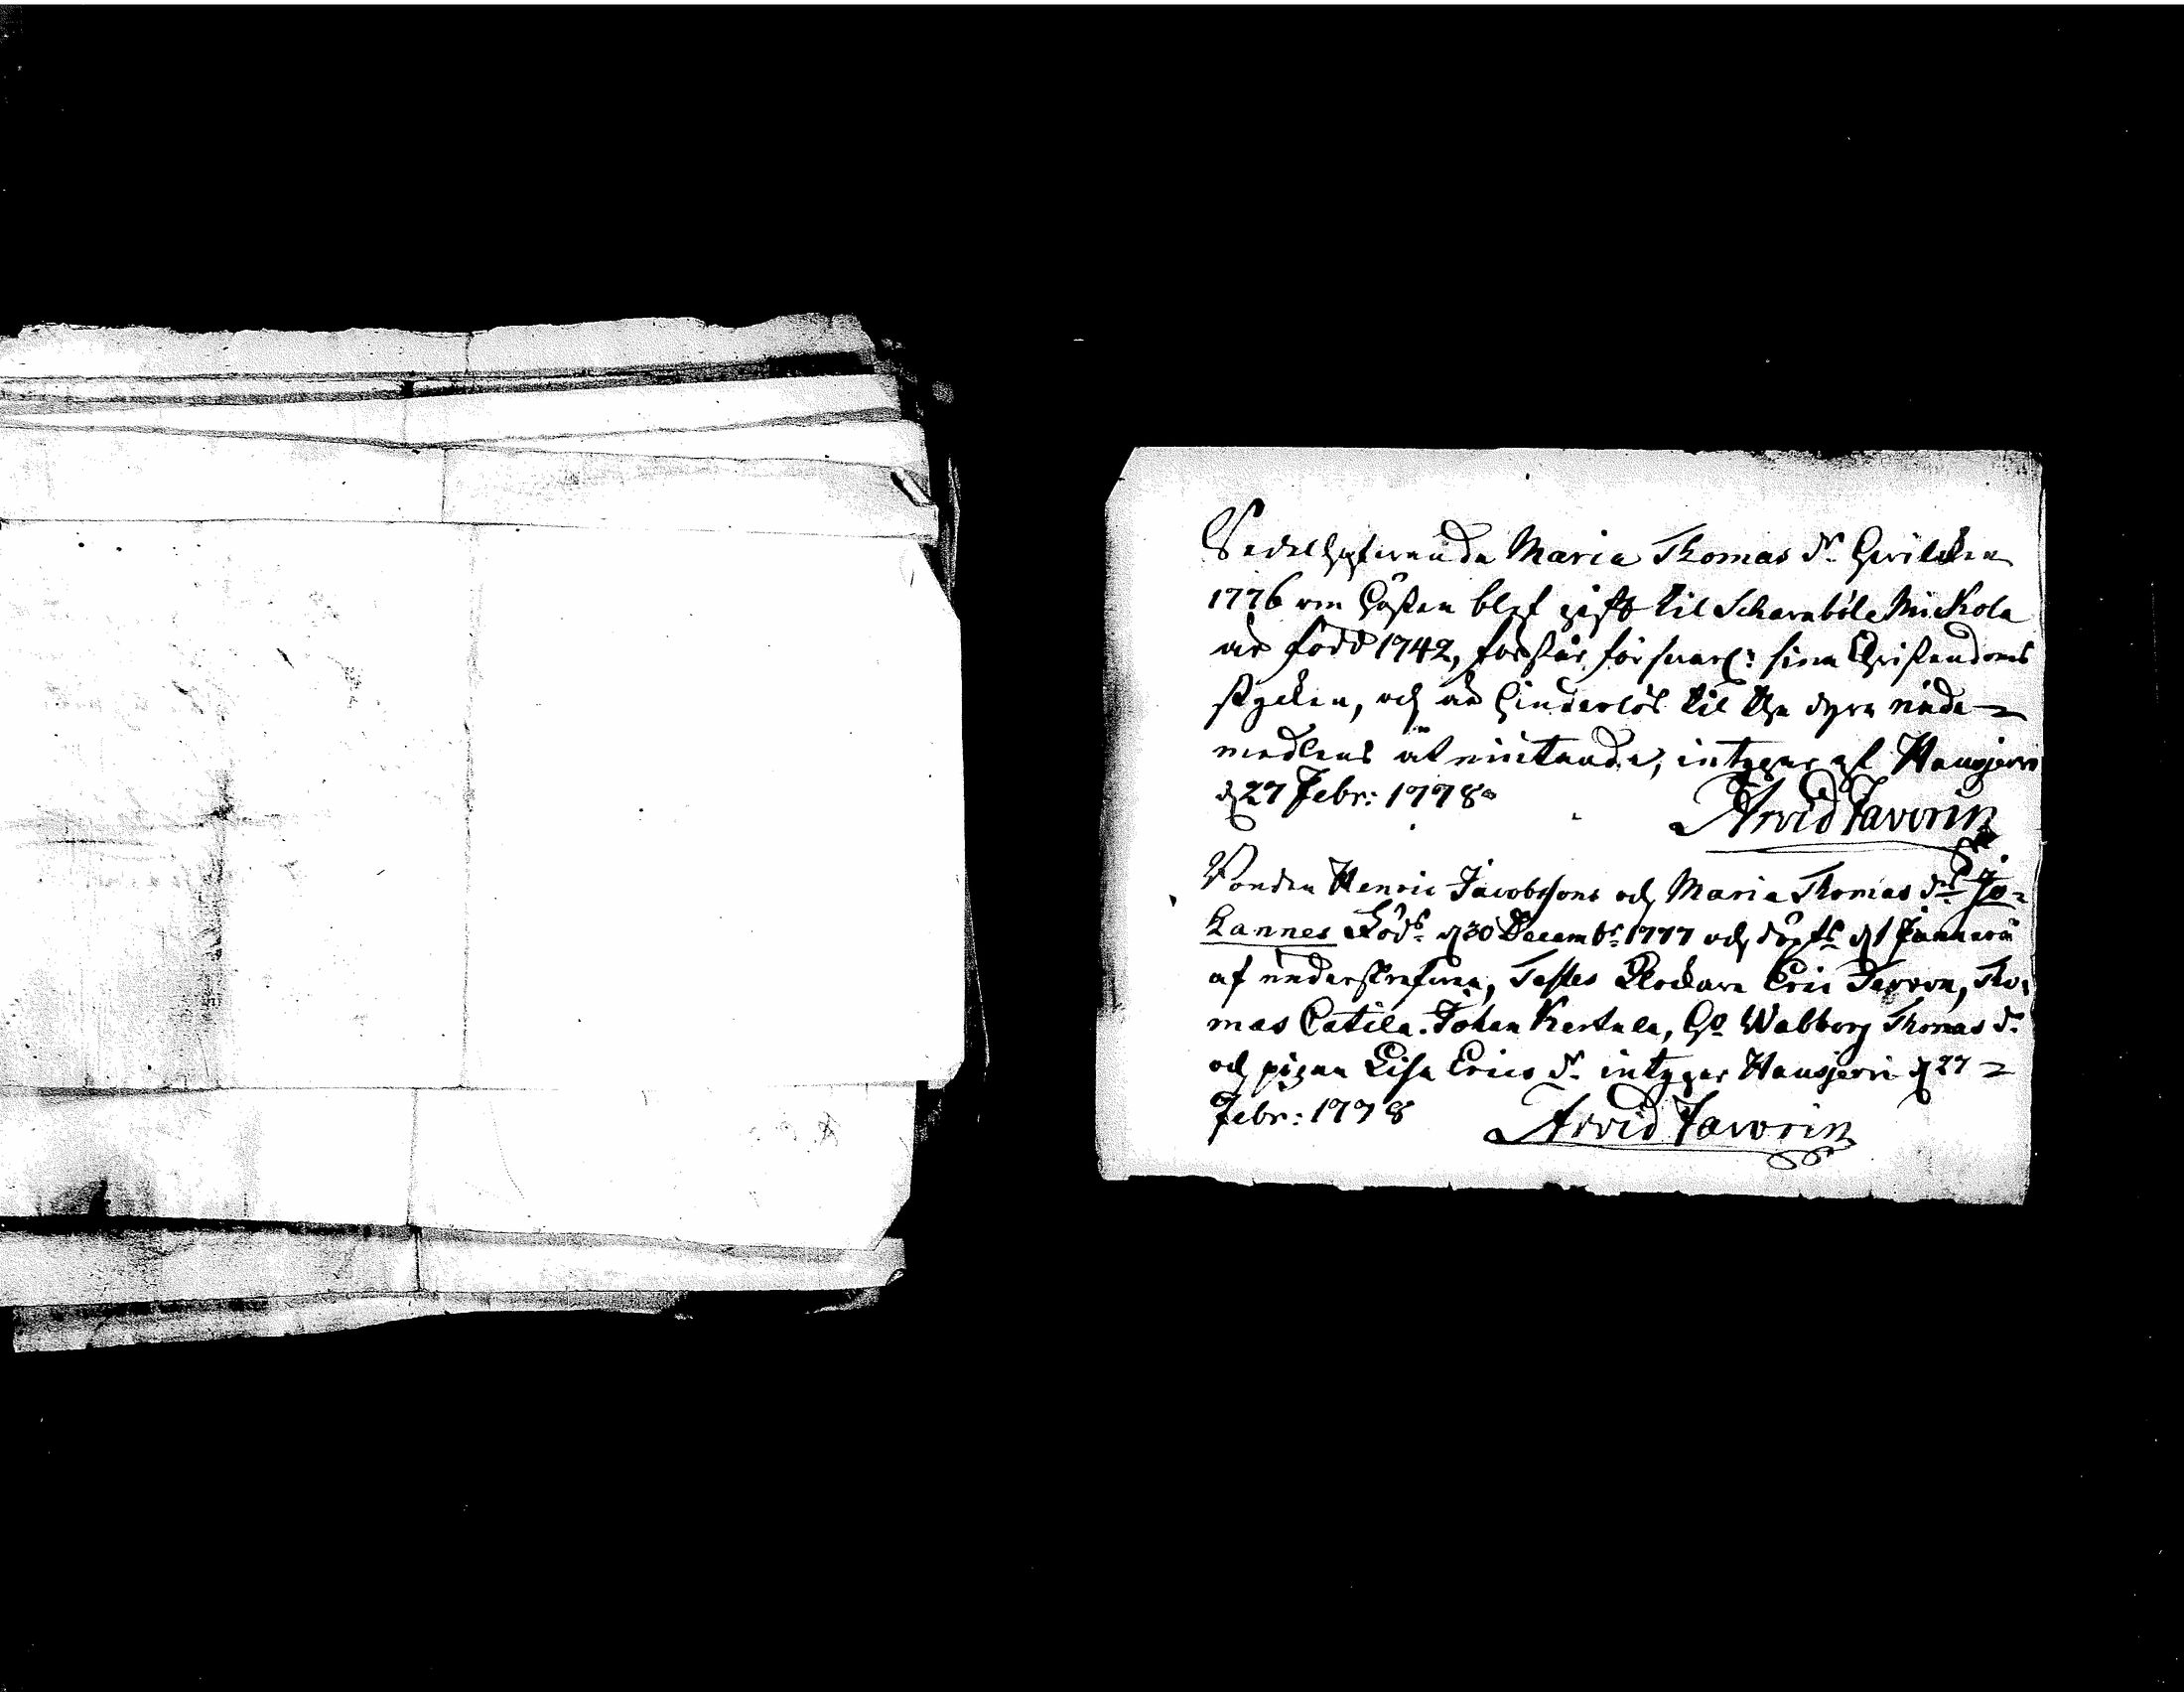 Sedelhafwanda Maria Thomas dr hwilcken
1776 om hösten blef gift til Scharnböle Mickola
är född 1742, förstår förswarl: sina Christendoms
stycken, och är hinderlös til the dyra nåde
medlens åtniutande, intygar af Hausjerwi
d 27 Febr: 1778
Arvid Favorin
Bonden Henric Jacobssons och Maria Thomas drs Jo-
hannes Född d 30 Decembr 1777 och döpt d 1 Januarii
af underskrefwen, Testes Klockare Eric, Tho-
mas Catila. Johan Kertula, H:o Walborg Thomas dr
och pigan Lisa Erics dr intygar Hausjerwi d 27
Febr: 1778
Arvid Favorin